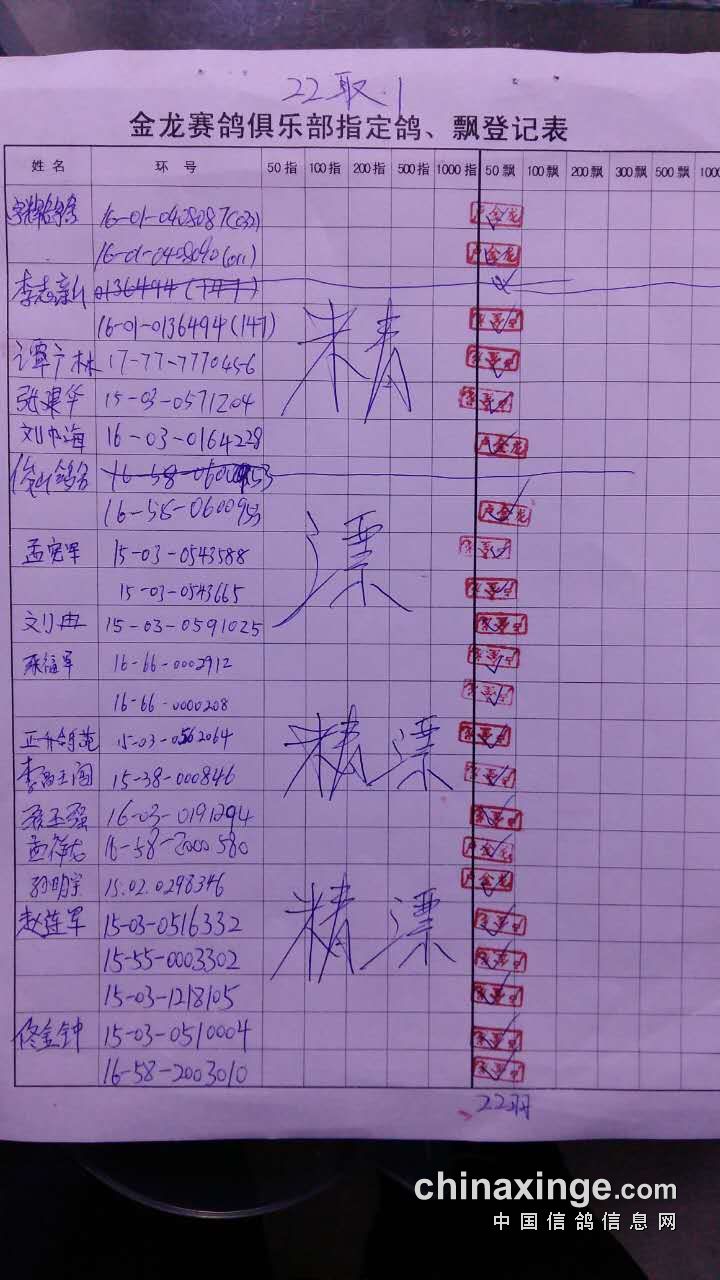 22取1
金龙赛鸽俱乐部指定鸽、飘登记表
姓名 环号 50指 100指 200指 500指 1000指 50飘 100飘 200飘 300飘 500飘 1000
16-01-0408087(032)
16-01-0408090(011)
李志新 0136494(147)
16-01-0136494(147)
谭广林 17-77-7770456
张建华 15-03-0571204
刘中海 16-03-0164228
16-58-0600953
16-58-0600953
孟宪军 15-03-0543588
15-03-0543665
刘冉 15-03-0591025
张继军 16-66-0002912
16-66-0000208
15-03-0562064
15-38-000846
16-03-0191294
孟祥志 16-58-2000580
孙明宇 15.02.0298346
赵莲军 15-03-0516332
15-55-0003302
15-03-1218105
佟金钟 15-03-0510004
16-58-2003010
精
漂
精漂
精漂
卢金龙
22羽
chinaxinge.com
中国信鸽信息网